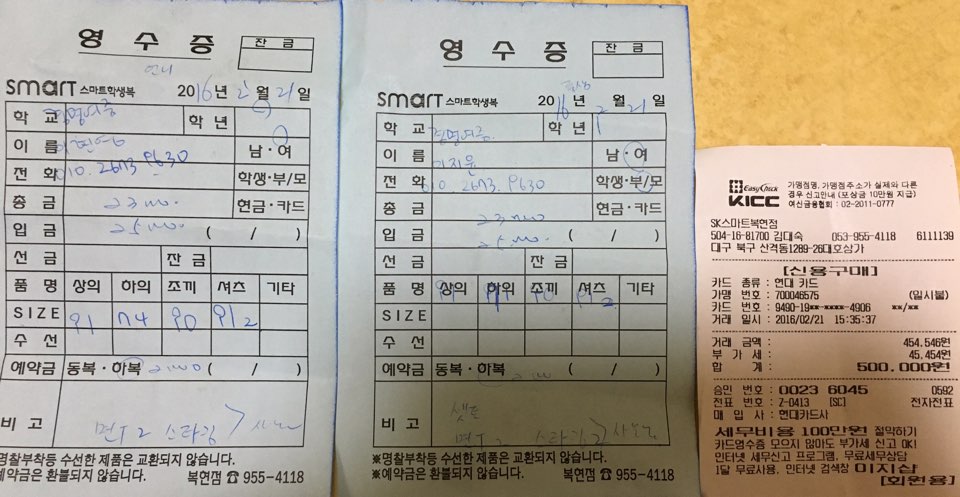 영 수 증
잔 금
언니
smart 스마트학생복 2016년 2월 21일
학 교 경명여중 학 년
이 름 남·여
전 화 010.2673.9630 학생·부/모
총 금 현금·카드
입 금 ( / )
선 금 잔 금
품 명 상의 하의 조끼 셔츠 기타
SIZE 91 74 90 91 2
수 선
예약금 동복·하복 ( / )
비 고 면T 2 스타킹
명찰부착등 수선한 제품은 교환되지 않습니다.
예약금은 환불되지 않습니다. 복현점 ☎ 955-4118
영 수 증
잔 금
smart 스마트학생복 2016년 2월 21일
학 교 경명여중 학 년 1
이 름 이지윤 남·여
전 화 010.2673.9630 학생·부/모
총 금 현금·카드
입 금 ( / )
선 금 잔 금
품 명 상의 하의 조끼 셔츠 기타
SIZE
수 선
예약금 동복·하복 ( / )
비 고 셋트
면T 2 스타킹 2
※명찰부착등 수선한 제품은 교환되지 않습니다.
※예약금은 환불되지 않습니다. 복현점 ☎ 955-4118
EasyCheck
KICC
가맹점명, 가맹점주소가 실제와 다른
경우 신고안내 (포상금 10만원 지급)
여신금융협회 : 02-2011-0777
SK스마트복현점
504-16-81700 김대숙 053-955-4118 6111139
대구 북구 산격동1289-26대호상가
[신용구매]
카드 종류 : 현대 카드
가맹 번호 : 700046575 (일시불)
카드 번호 : 9490-19**-****-4906 **/**
거래 일시 : 2016/02/21 15:35:37
거래 금액 : 454.546원
부 가 세 : 45.454원
합 계 : 500.000원
승인 번호 : 0023 6045 0592
전표 번호 : Z-0413 [SC] 전자전표
매 입 사 : 현대카드사
세무비용 100만원 절약하기
카드영수증 모으지 않아도 부가세 신고 OK!
인터넷 세무신고 프로그램, 무료세무상담
1달 무료사용, 인터넷 검색창 이지샵
[회원용]